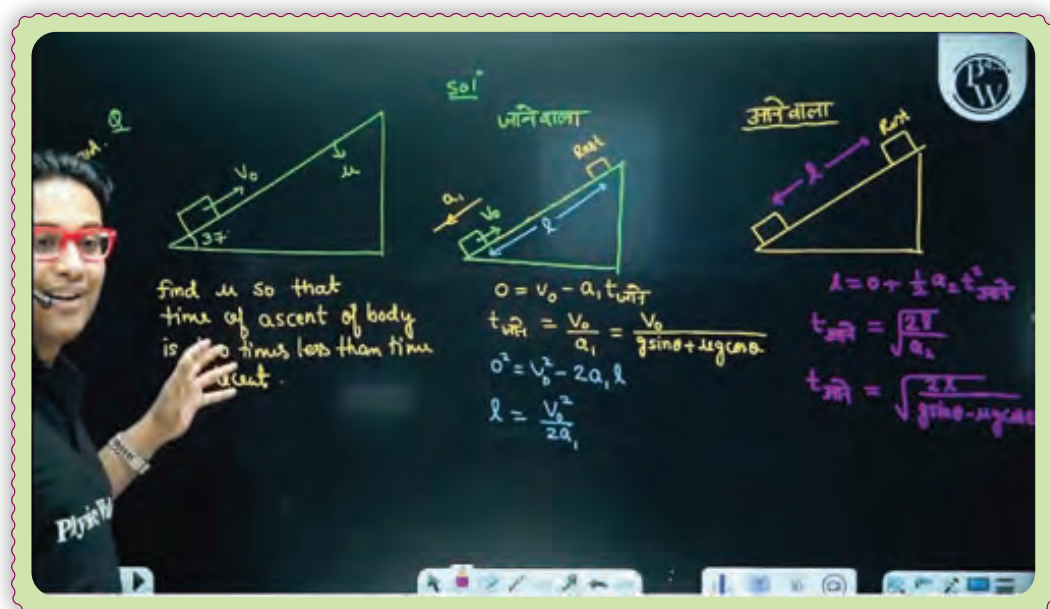 Q
V₀
μ
37°
find μ so that
time of ascent of body
is times less than time
Solⁿ
जाने वाला
Rest
a₁
V₀
l
0 = V₀ - a₁ t जाने
t जाने = V₀/a₁ = V₀/(g sinθ + μg cosθ)
0² = V₀² - 2a₁l
l = V₀²/2a₁
आने वाला
Rest
l
l = 0 + ½ a₂ t² आने
t आने = √(2l/a₂)
t आने = √(2l/(g sinθ - μg cosθ))
PW